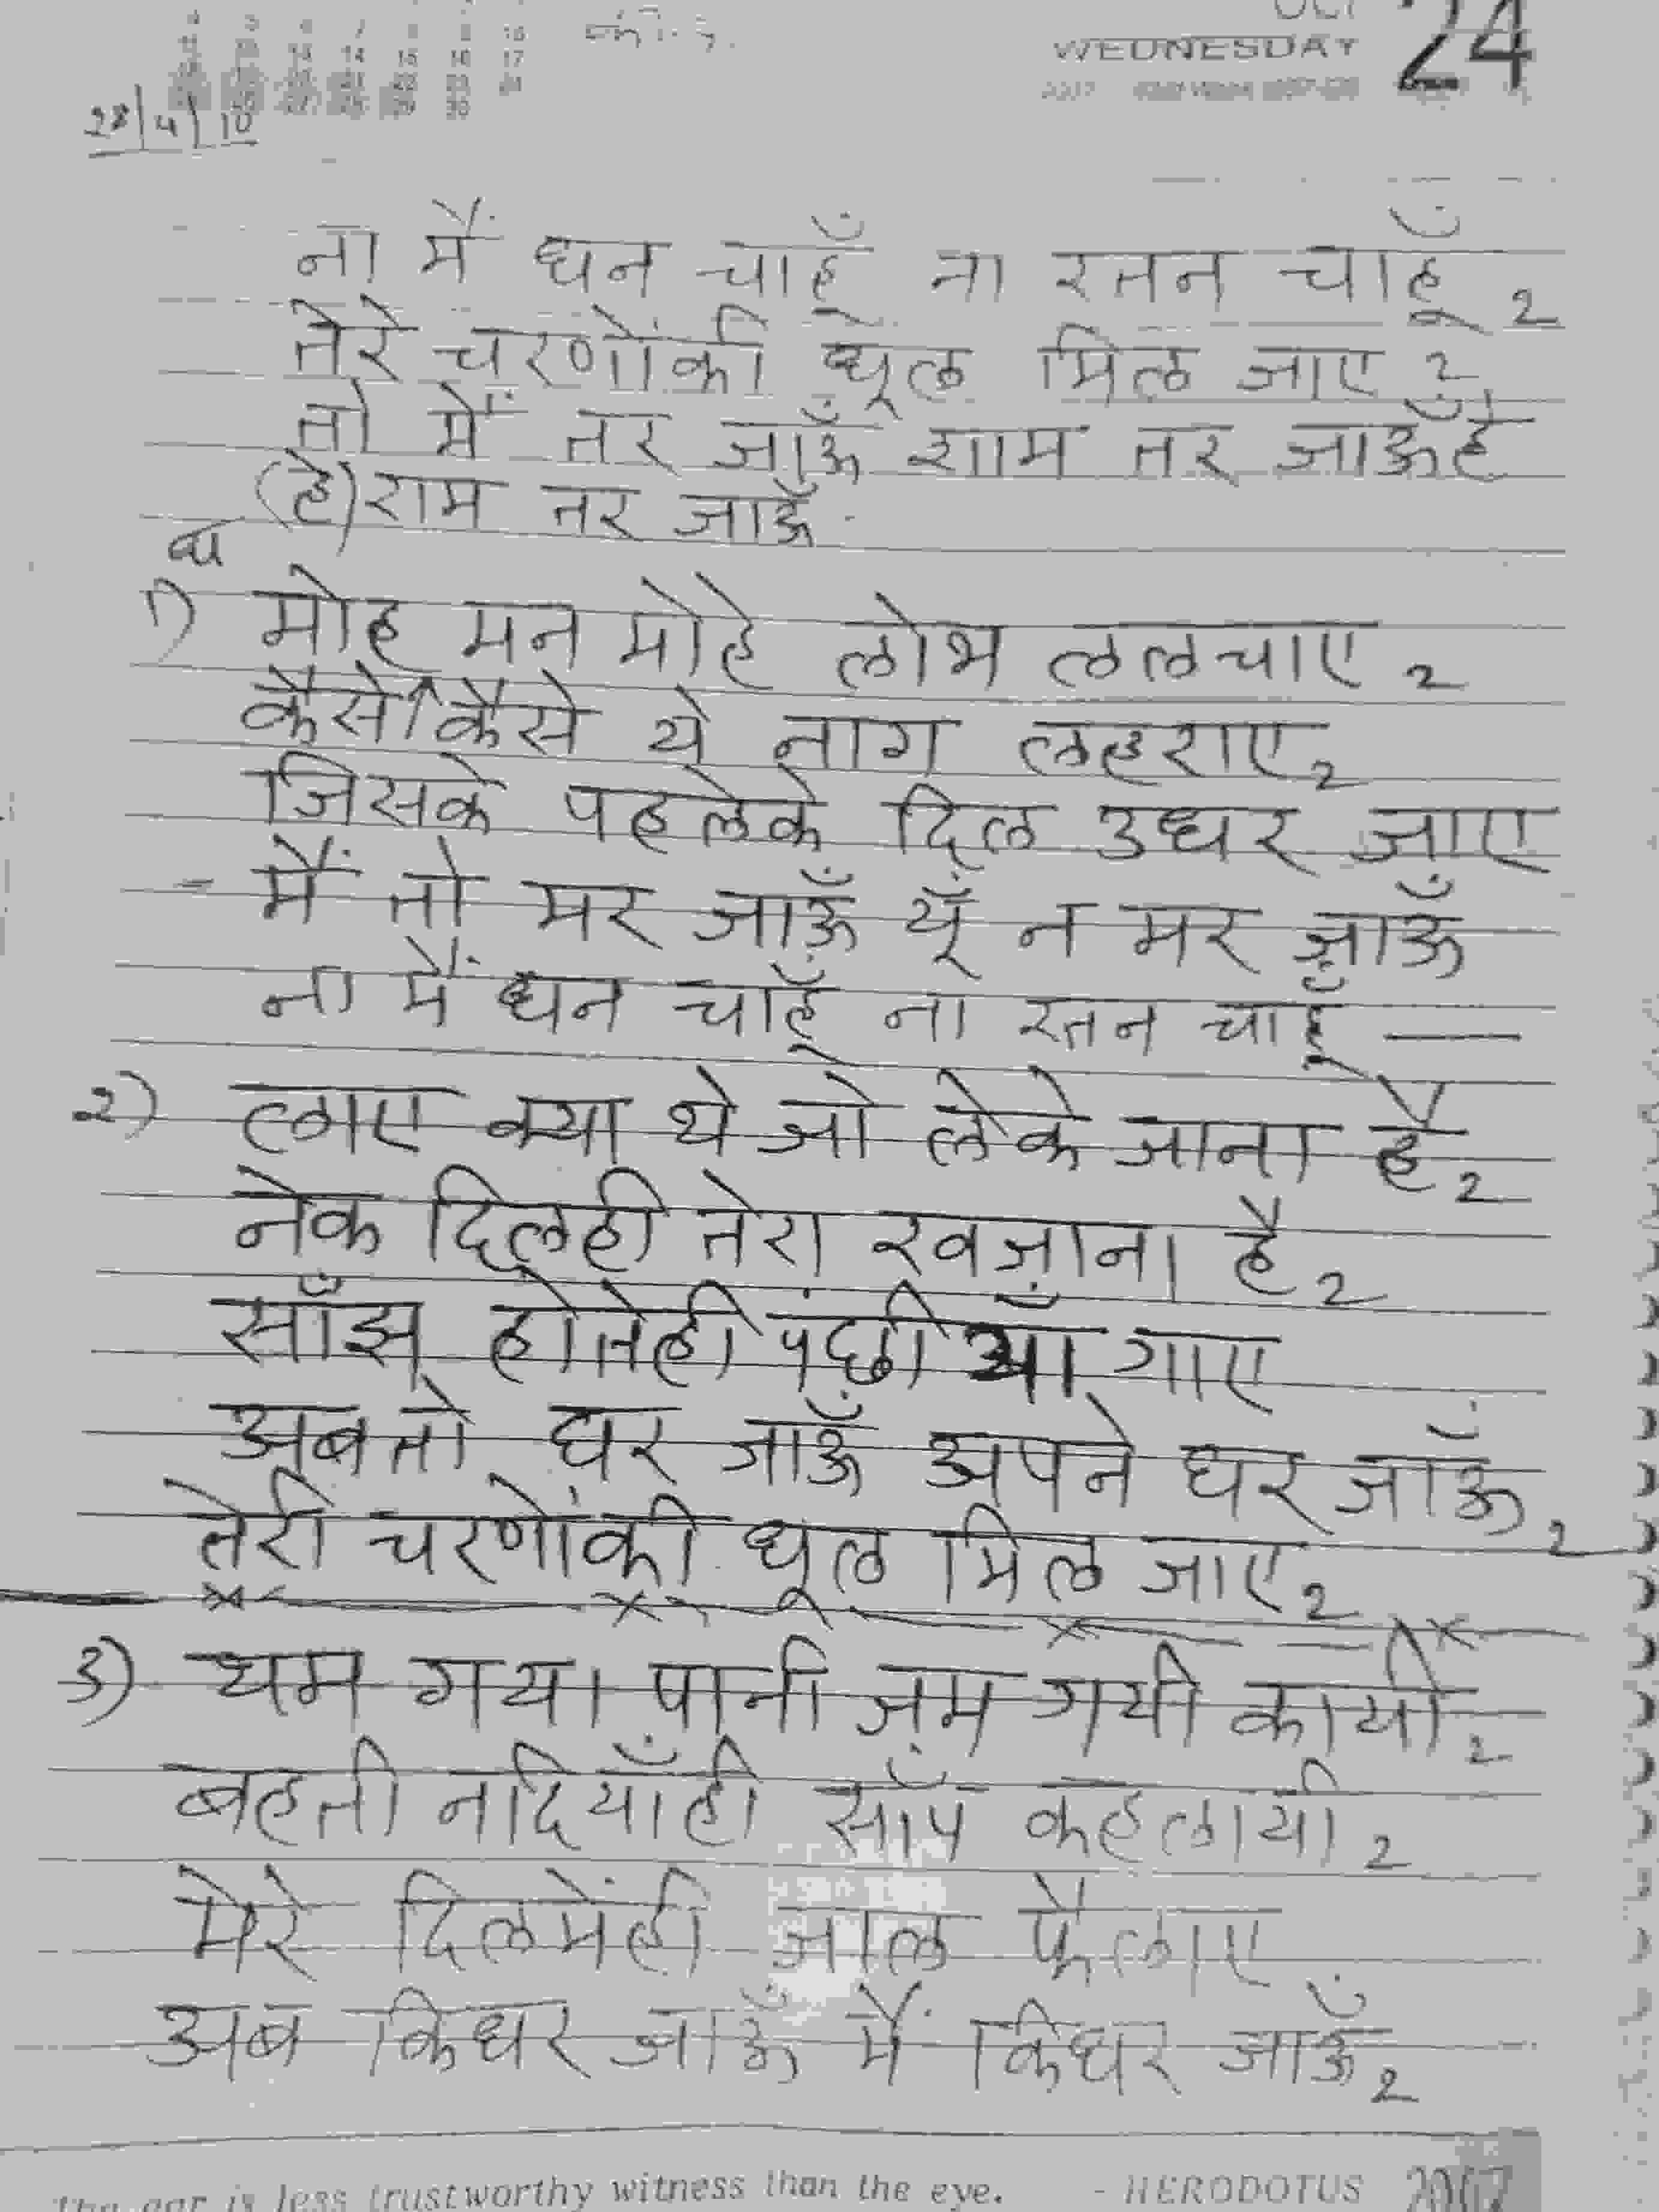 OCT 24
WEDNESDAY
28/4/10
ना मैं धन चाहूँ ना रतन चाहूँ 2
तेरे चरणोंकी धूल मिल जाए 2
तो मैं तर जाऊँ शाम तर जाऊँ हे
(हे) राम तर जाऊँ
1) मोह मन मोहे लोभ ललचाए 2
कैसे कैसे ये नाग लहराए 2
जिसके पहलेके दिल उधर जाए
मैं तो मर जाऊँ यूँ न मर जाऊँ
ना मैं धन चाहूँ ना रतन चाहूँ —
२) लाए क्या थे जो लेके जाना है 2
नेक दिलही तेरा खज़ाना है 2
साँझ होतेही पंछी आ गाए
अब तो घर जाऊँ अपने घर जाऊँ 2
तेरी चरणोंकी धूल मिल जाए 2
3) थम गया पानी जम गयी कायी 2
बहती नदियाँही साँप कहलायी 2
मेरे दिलमेंही जाल फैलाए
अब किधर जाऊँ मैं किधर जाऊँ 2
The ear is less trustworthy witness than the eye. - HERODOTUS 2007